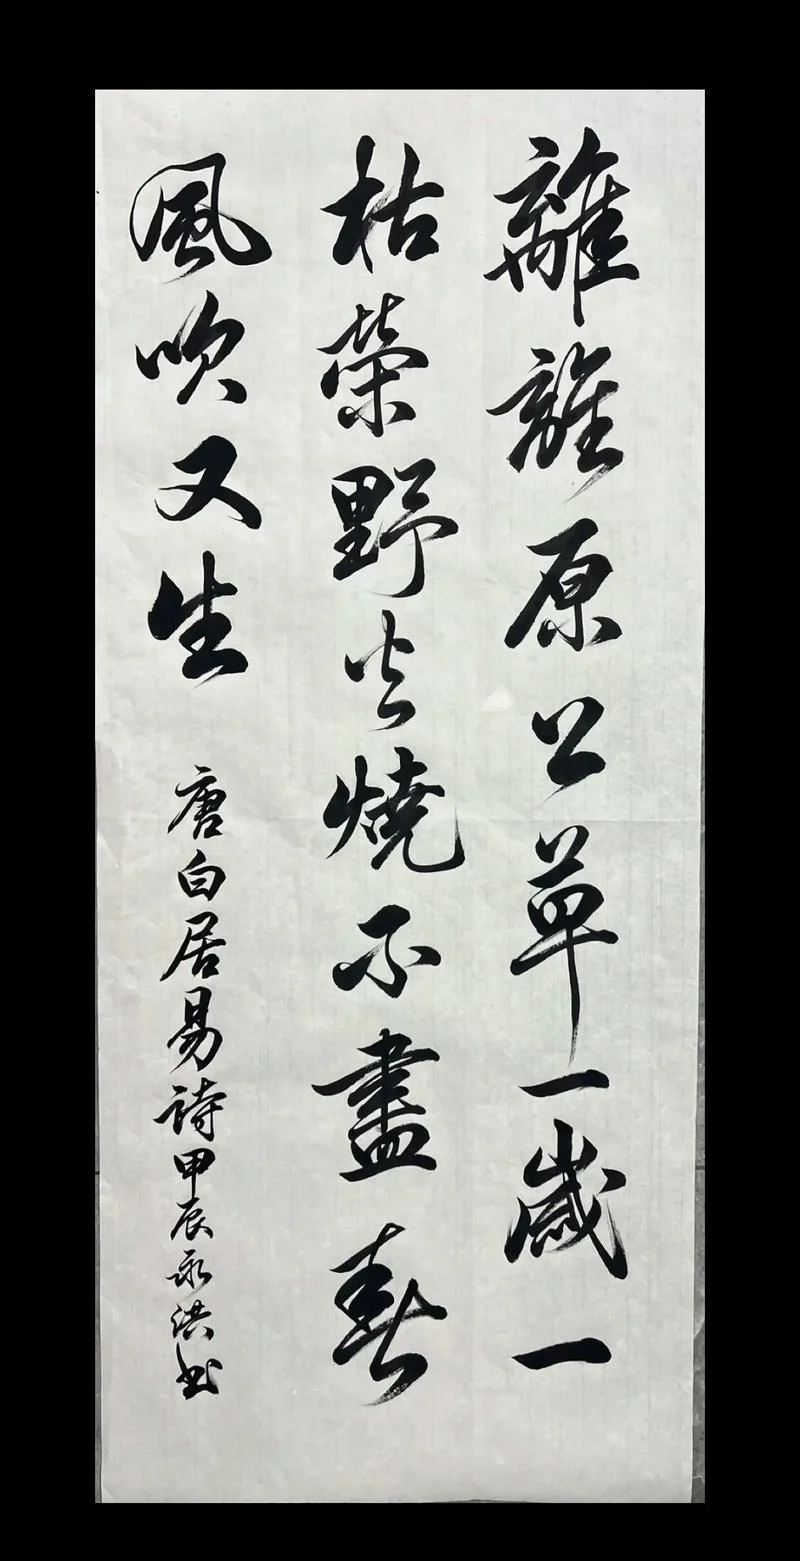 離離原上草一歲一
枯榮野火燒不盡春
風吹又生 唐白居易詩甲辰永洪书